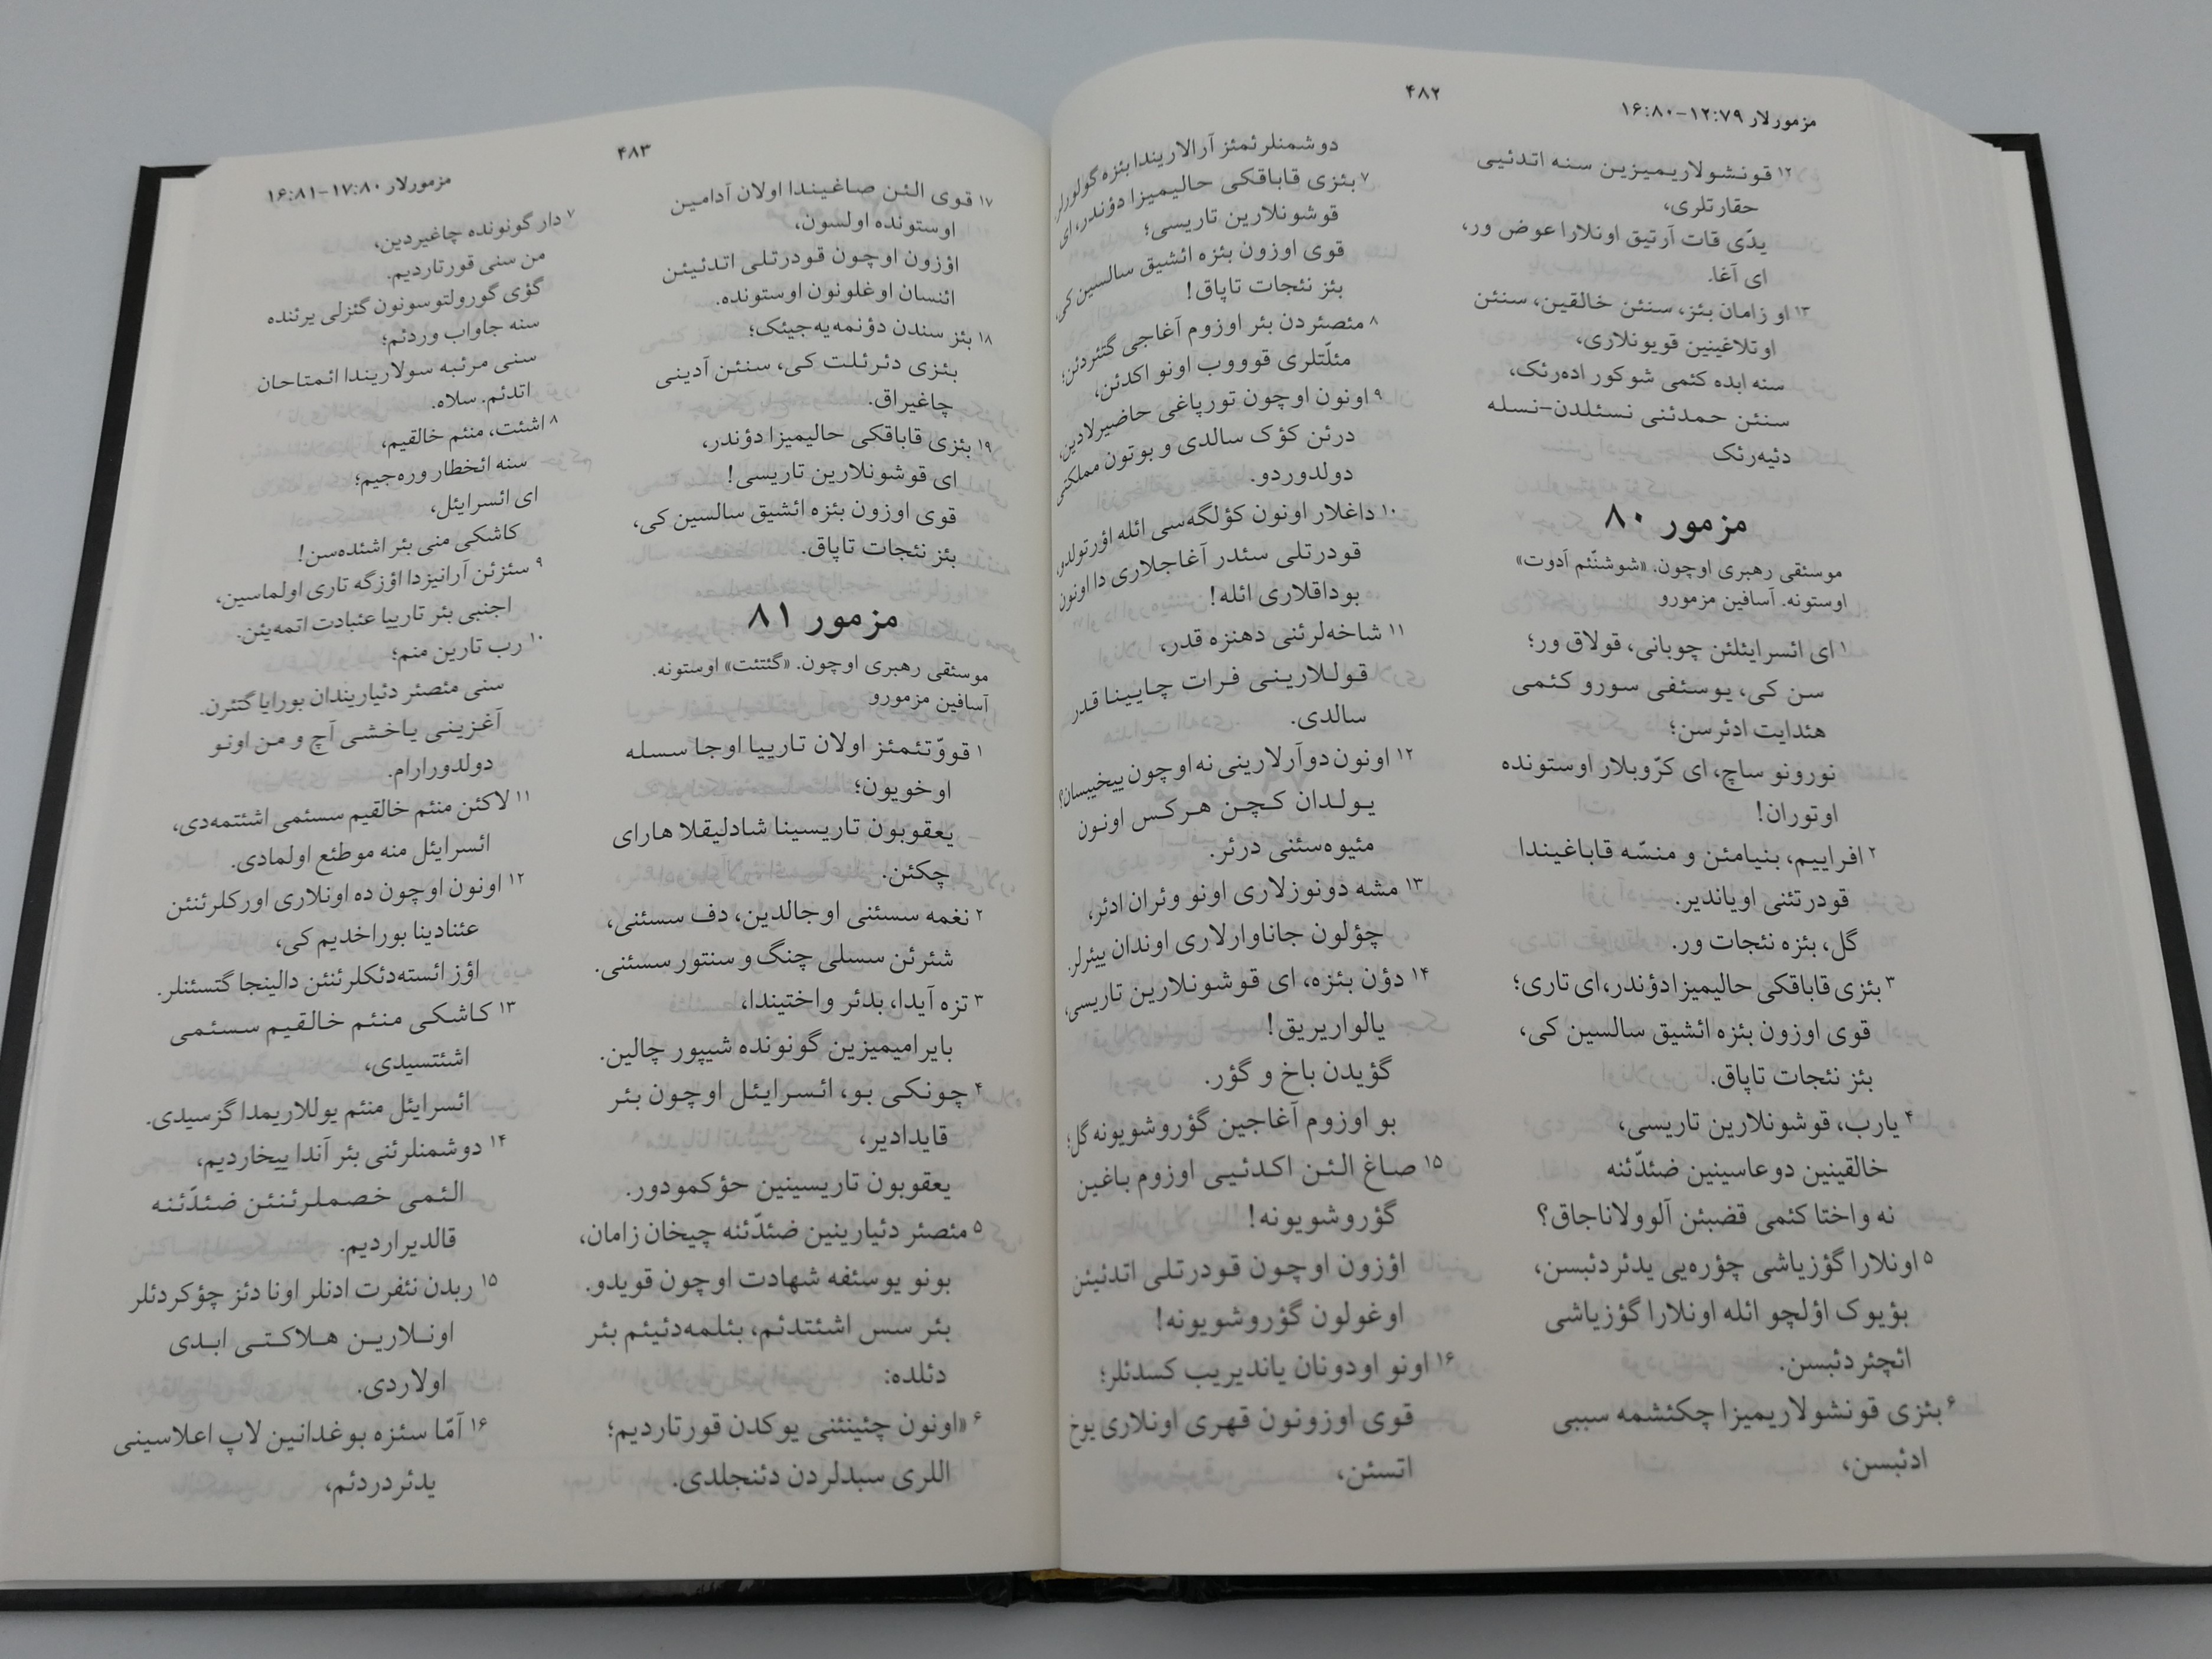 مزمورلار ۱۲:۷۹-۱۶:۸۰
۴۸۲
۱۲ قونشولاریمیزین سنه اتدئیی
حقارتلری،
یدّی قات آرتیق اونلارا عوض ور،
ای آغا.
۱۳ او زامان بئز، سنئن خالقین، سنئن
اوتلاغینین قویونلاری،
سنه ابده کئمی شوکور اده‌رئک،
سنئن حمدئنی نسئلدن-نسله
دئیه‌رئک
مزمور ۸۰
موسئقی رهبری اوچون. «شوشنّئم اَدوت»
اوستونه. آسافین مزمورو
۱ ای ائسرایئلئن چوبانی، قولاق ور؛
سن کی، یوسئفی سورو کئمی
هئدایت ادئرسن؛
نورونو ساچ، ای کرّوبلار اوستونده
اوتوران!
۲ افراییم، بنیامئن و منسّه قاباغیندا
قودرتئنی اویاندیر.
گل، بئزه نئجات ور.
۳ بئزی قاباقکی حالیمیزا دؤندر، ای تاری؛
قوی اوزون بئزه ائشیق سالسین کی،
بئز نئجات تاپاق.
۴ یارب، قوشونلارین تاریسی،
خالقینین دوعاسینین ضئدّئنه
نه واختا کئمی قضبئن آلوولاناجاق؟
۵ اونلارا گؤزیاشی چؤره‌یی یدئردئبسن،
بؤیوک اؤلچو ائله اونلارا گؤزیاشی
ائچئردئبسن.
۶ بئزی قونشولاریمیزا چکئشمه سببی
ادئبسن،
دوشمنلرئمئز آرالاریندا بئزه گولورلر.
۷ بئزی قاباقکی حالیمیزا دؤندر، ای
قوشونلارین تاریسی؛
قوی اوزون بئزه ائشیق سالسین کی،
بئز نئجات تاپاق!
۸ مئصئردن بئر اوزوم آغاجی گتئردئن؛
مئلّتلری قوووب اونو اکدئن،
۹ اونون اوچون تورپاغی حاضیرلادین،
درئن کؤک سالدی و بوتون مملکتی
دولدوردو.
۱۰ داغلار اونون کؤلگه‌سی ائله اؤرتولدو،
قودرتلی سئدر آغاجلاری دا اونون
بوداقلاری ائله!
۱۱ شاخه‌لرئنی دهنزه قدر،
قوللارینی فرات چایینا قدر
سالدی.
۱۲ اونون دوآرلارینی نه اوچون ییخیبسان؟
یولدان کچن هرکس اونون
مئیوه‌سئنی درئر.
۱۳ مشه دونوزلاری اونو وئران ادئر،
چؤلون جاناوارلاری اوندان ییئرلر.
۱۴ دؤن بئزه، ای قوشونلارین تاریسی،
یالواریریق!
گؤیدن باخ و گؤر.
بو اوزوم آغاجین گؤروشویونه گل؛
۱۵ صاغ الئن اکدئیی اوزوم باغین
گؤروشویونه!
اؤزون اوچون قودرتلی اتدئیئن
اوغولون گؤروشویونه!
۱۶ اونو اودونان یاندیریب کسدئلر؛
قوی اوزونون قهری اونلاری یوخ
اتسئن،
۴۸۳
مزمورلار ۱۷:۸۰-۱۶:۸۱
۱۷ قوی الئن صاغیندا اولان آدامین
اوستونده اولسون،
اؤزون اوچون قودرتلی اتدئیئن
ائنسان اوغلونون اوستونده.
۱۸ بئز سندن دؤنمه‌یه‌جیئک؛
بئزی دئرئلت کی، سنئن آدینی
چاغیراق.
۱۹ بئزی قاباقکی حالیمیزا دؤندر،
ای قوشونلارین تاریسی!
قوی اوزون بئزه ائشیق سالسین کی،
بئز نئجات تاپاق.
مزمور ۸۱
موسئقی رهبری اوچون. «گئتئت» اوستونه.
آسافین مزمورو
۱ قووّتئمئز اولان تارییا اوجا سسله
اوخویون؛
یعقوبون تاریسینا شادلیقلا هارای
چکئن.
۲ نغمه سسئنی اوجالدین، دف سسئنی،
شئرئن سسلی چنگ و سنتور سسئنی.
۳ تزه آیدا، بدئر واختیندا،
بایرامیمیزین گونونده شیپور چالین.
۴ چونکی بو، ائسرایئل اوچون بئر
قایدادیر،
یعقوبون تاریسینین حؤکمودور.
۵ مئصئر دئیارینین ضئدّئنه چیخان زامان،
بونو یوسئفه شهادت اوچون قویدو.
بئر سس اشئتدئم، بئلمه‌دئیئم بئر
دئلده:
۶ «اونون چئینئنی یوکدن قورتاردیم؛
اللری سبدلردن دئنجلدی.
۷ دار گونونده چاغیردین،
من سنی قورتاردیم.
گؤی گورولتوسونون گئزلی یرئنده
سنه جاواب وردئم؛
سنی مرئبه سولاریندا ائمتاحان
اتدئم. سلاه.
۸ اشئت، منئم خالقیم،
سنه ائخطار وره‌جیم؛
ای ائسرایئل،
کاشکی منی بئر اشئده‌سن!
۹ سئزئن آرانیزدا اؤزگه تاری اولماسین،
اجنبی بئر تارییا عئبادت اتمه‌یئن.
۱۰ رب تارین منم؛
سنی مئصئر دئیاریندان بورایا گتئرن.
آغزینی یاخشی آچ و من اونو
دولدورارام.
۱۱ لاکئن منئم خالقیم سسئمی اشئتمه‌دی،
ائسرایئل منه موطئع اولمادی.
۱۲ اونون اوچون ده اونلاری اورکلرئنئن
عئنادینا بوراخدیم کی،
اؤز ائسته‌دئکلرئنئن دالینجا گتسئنلر.
۱۳ کاشکی منئم خالقیم سسئمی
اشئتسیدی،
ائسرایئل منئم یوللاریمدا گزسیدی.
۱۴ دوشمنلرئنی بئر آندا ییخاردیم،
الئمی خصملرئنئن ضئدّئنه
قالدیراردیم.
۱۵ ربدن نئفرت ادنلر اونا دئز چؤکردئلر
اونلارین هلاکتی ابدی
اولاردی.
۱۶ آمّا سئزه بوغدانین لاپ اعلاسینی
یدئردردئم،